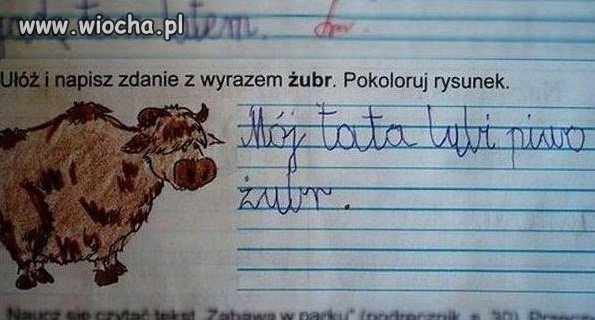 www.wiocha.pl
latem.
Ułóż i napisz zdanie z wyrazem żubr. Pokoloruj rysunek.
Mój tata lubi piwo
żubr.
Naucz się czytać tekst „Zabawa w parku" (podręcznik, s. 30).